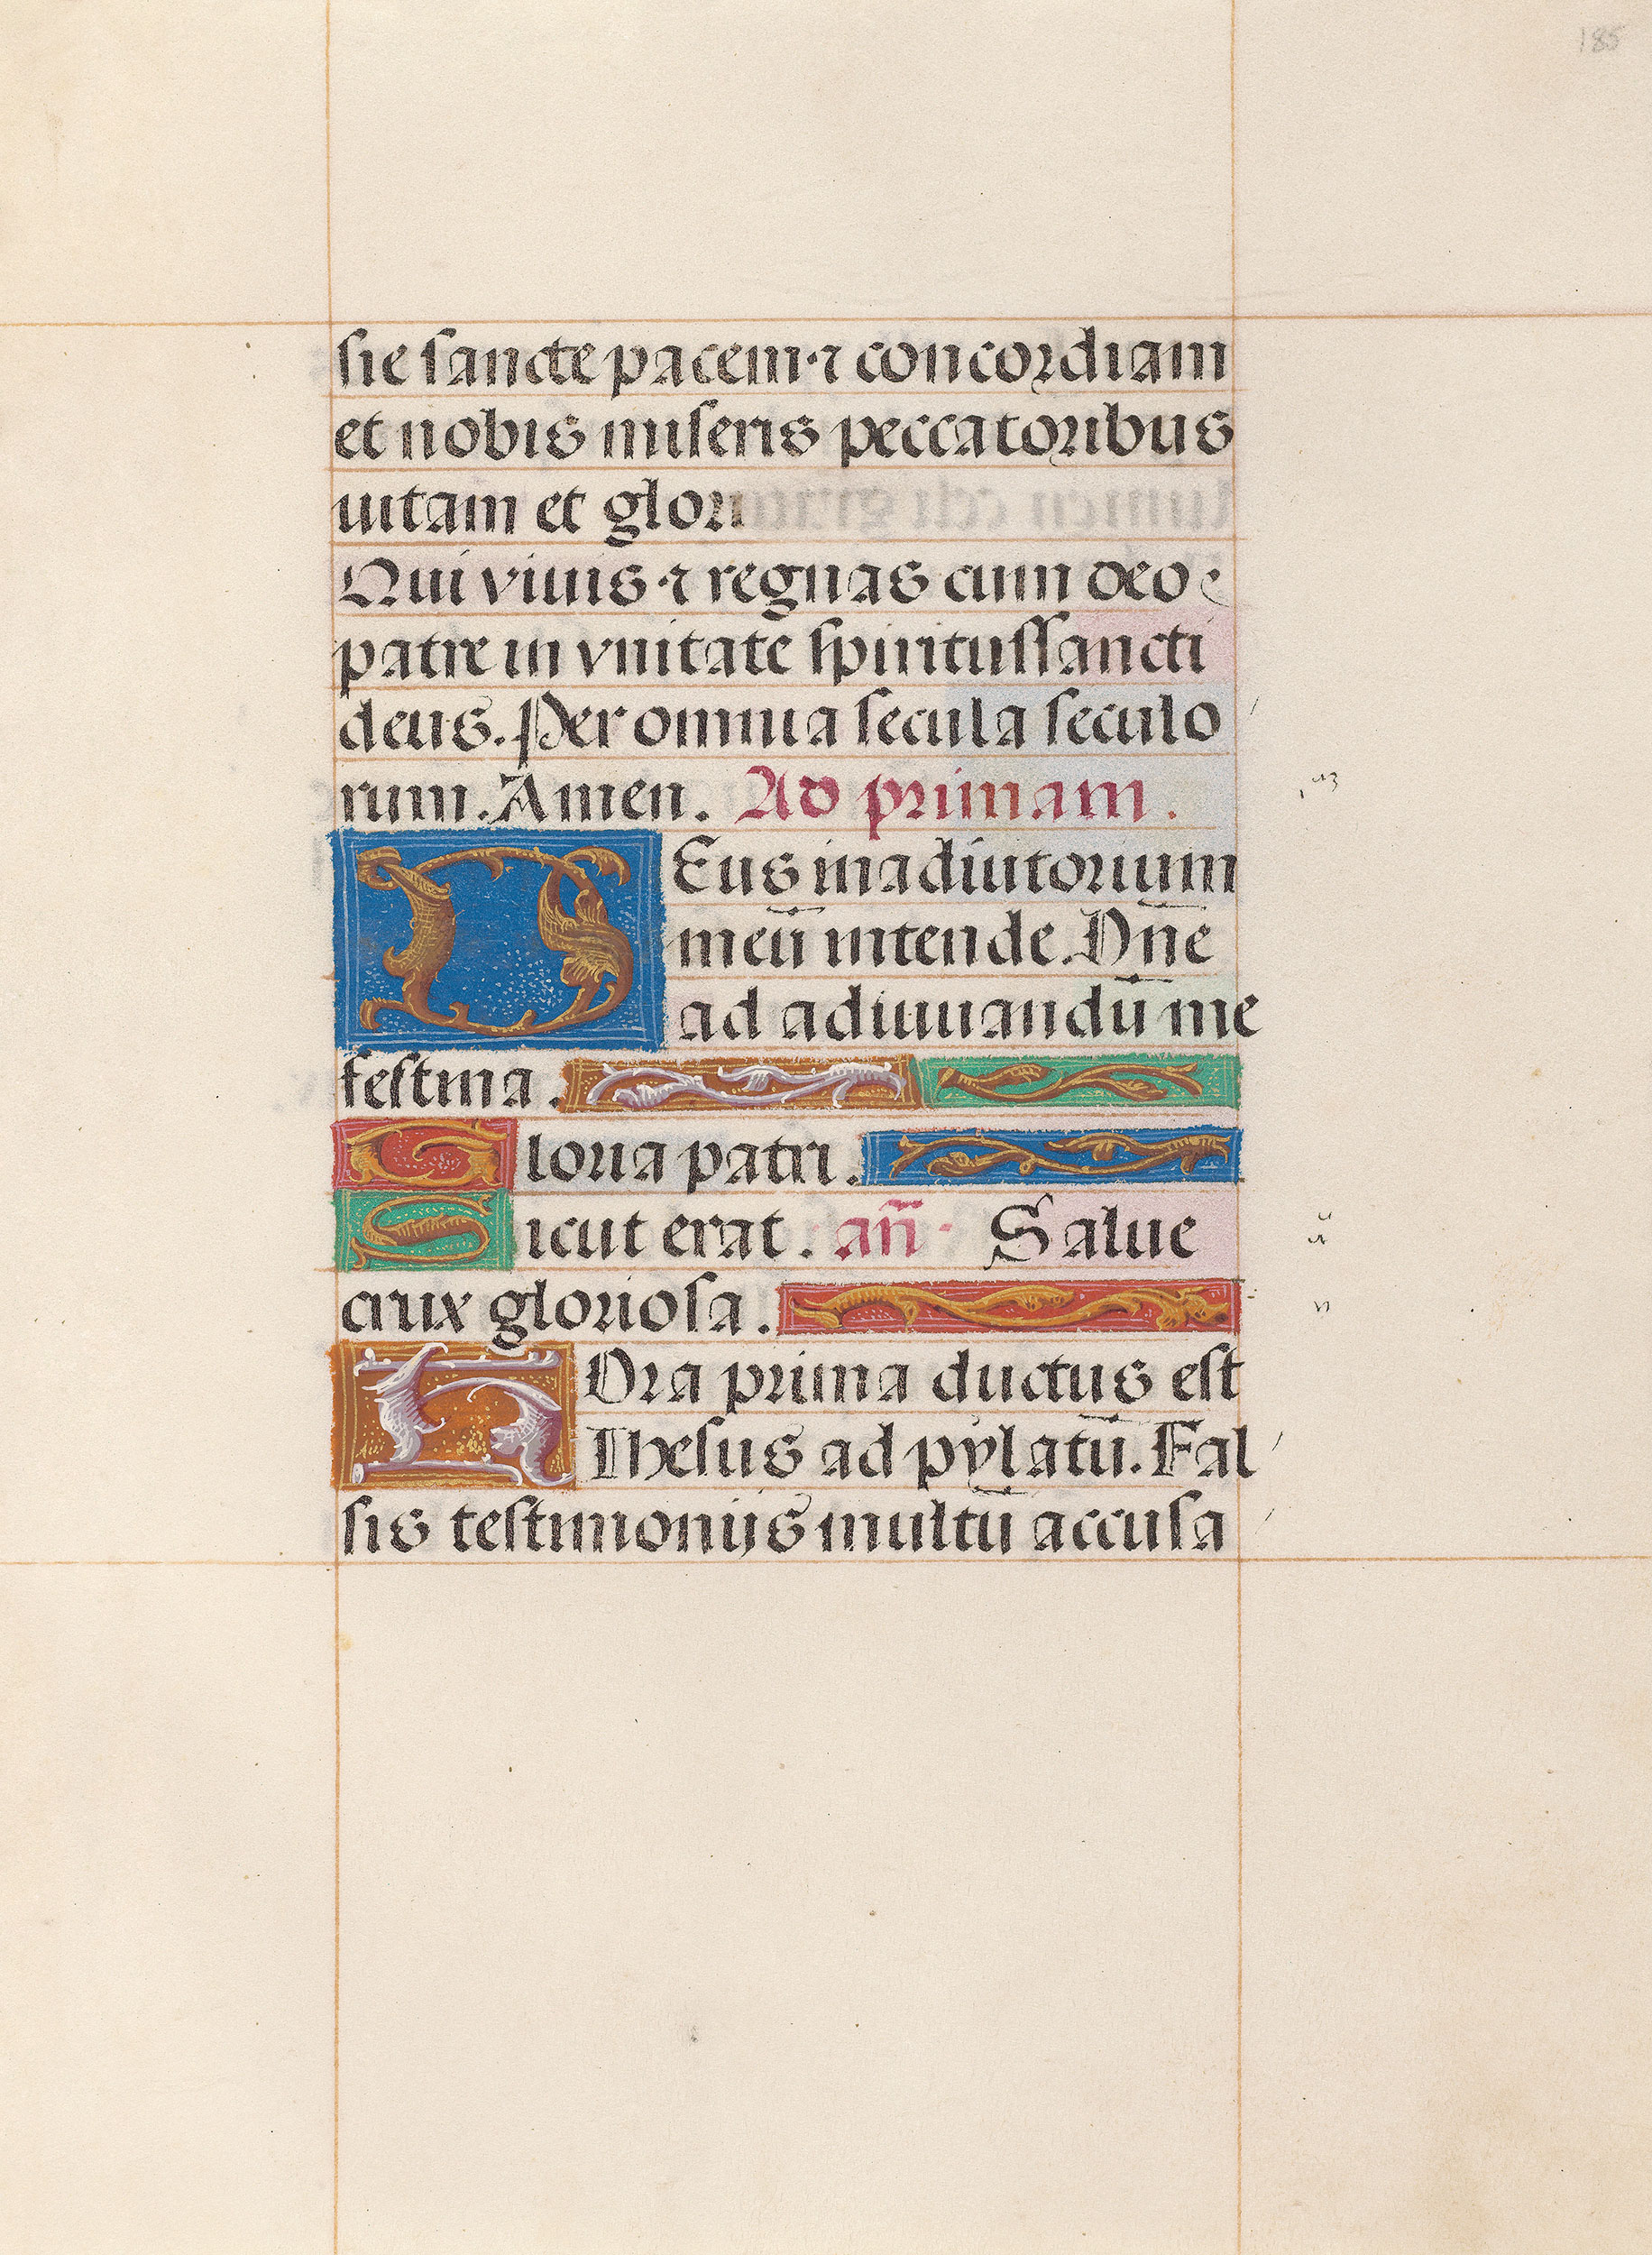 185
sie sancte pacem ⁊ concordiam
et nobis miseris peccatoribus
uitam et glori
Qui viuis ⁊ regnas cum deo
patre in vnitate spiritussancti
deus. Per omnia secula seculo
rum. Amen. Ad primam.
DEus in adiutorium
meū intende. Dn̄e
ad adiuuandū me
festina.
Gloria patri.
Sicut erat. an̄ Salue
crux gloriosa.
HOra prima ductus est
Ihesus ad pylatū. Fal
sis testimonijs multū accusa